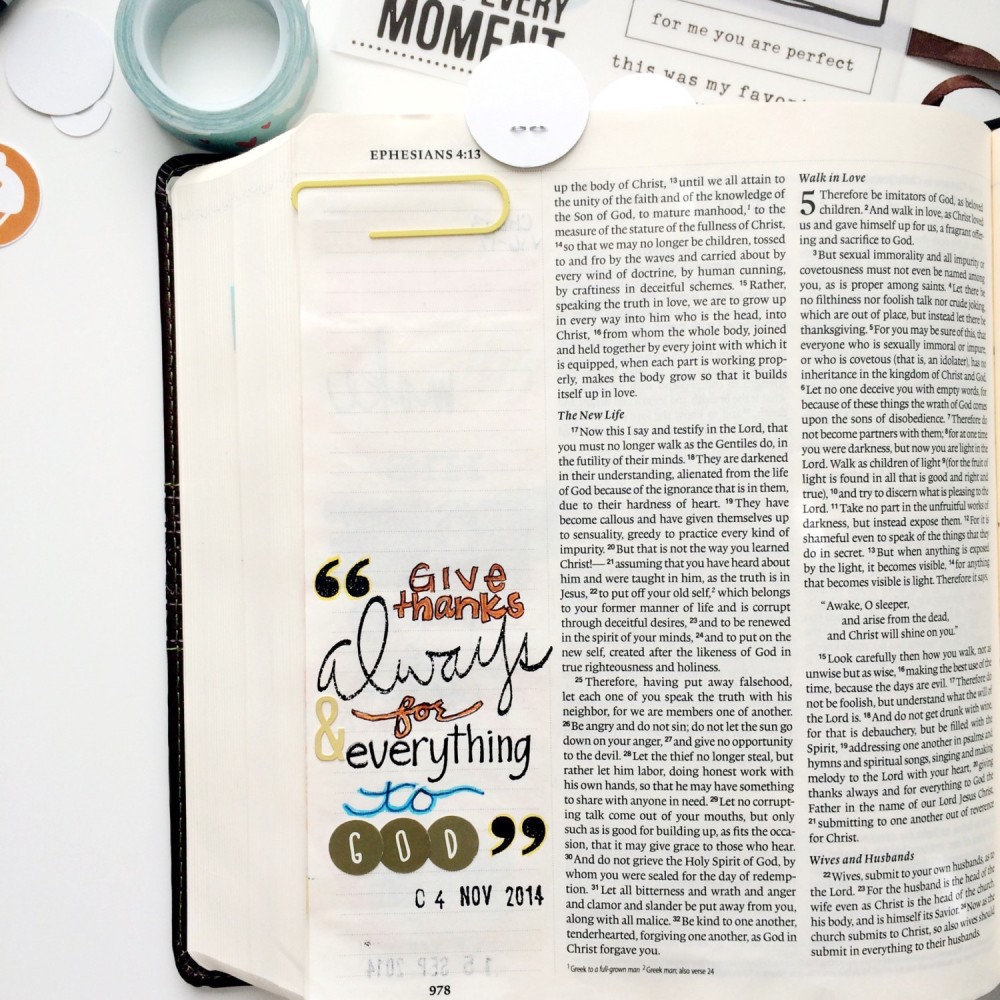 EVERY
MOMENT
for me you are perfect
this was my favor
EPHESIANS 4:13
“ GIVE
thanks
always
& for
everything
to
GOD ”
04 NOV 2014
15 SEP 2014
978
up the body of Christ, 13 until we all attain to
the unity of the faith and of the knowledge of
the Son of God, to mature manhood,1 to the
measure of the stature of the fullness of Christ,
14 so that we may no longer be children, tossed
to and fro by the waves and carried about by
every wind of doctrine, by human cunning,
by craftiness in deceitful schemes. 15 Rather,
speaking the truth in love, we are to grow up
in every way into him who is the head, into
Christ, 16 from whom the whole body, joined
and held together by every joint with which it
is equipped, when each part is working prop-
erly, makes the body grow so that it builds
itself up in love.
The New Life
17 Now this I say and testify in the Lord, that
you must no longer walk as the Gentiles do, in
the futility of their minds. 18 They are darkened
in their understanding, alienated from the life
of God because of the ignorance that is in them,
due to their hardness of heart. 19 They have
become callous and have given themselves up
to sensuality, greedy to practice every kind of
impurity. 20 But that is not the way you learned
Christ!— 21 assuming that you have heard about
him and were taught in him, as the truth is in
Jesus, 22 to put off your old self,2 which belongs
to your former manner of life and is corrupt
through deceitful desires, 23 and to be renewed
in the spirit of your minds, 24 and to put on the
new self, created after the likeness of God in
true righteousness and holiness.
25 Therefore, having put away falsehood,
let each one of you speak the truth with his
neighbor, for we are members one of another.
26 Be angry and do not sin; do not let the sun go
down on your anger, 27 and give no opportunity
to the devil. 28 Let the thief no longer steal, but
rather let him labor, doing honest work with
his own hands, so that he may have something
to share with anyone in need. 29 Let no corrupt-
ing talk come out of your mouths, but only
such as is good for building up, as fits the occa-
sion, that it may give grace to those who hear.
30 And do not grieve the Holy Spirit of God, by
whom you were sealed for the day of redemp-
tion. 31 Let all bitterness and wrath and anger
and clamor and slander be put away from you,
along with all malice. 32 Be kind to one another,
tenderhearted, forgiving one another, as God in
Christ forgave you.
1 Greek to a full-grown man 2 Greek man; also verse 24
Walk in Love
5 Therefore be imitators of God, as beloved
children. 2 And walk in love, as Christ loved
us and gave himself up for us, a fragrant offer-
ing and sacrifice to God.
3 But sexual immorality and all impurity or
covetousness must not even be named among
you, as is proper among saints. 4 Let there be
no filthiness nor foolish talk nor crude joking,
which are out of place, but instead let there be
thanksgiving. 5 For you may be sure of this, that
everyone who is sexually immoral or impure,
or who is covetous (that is, an idolater), has no
inheritance in the kingdom of Christ and God.
6 Let no one deceive you with empty words, for
because of these things the wrath of God comes
upon the sons of disobedience. 7 Therefore do
not become partners with them; 8 for at one time
you were darkness, but now you are light in the
Lord. Walk as children of light 9 (for the fruit of
light is found in all that is good and right and
true), 10 and try to discern what is pleasing to the
Lord. 11 Take no part in the unfruitful works of
darkness, but instead expose them. 12 For it is
shameful even to speak of the things that they
do in secret. 13 But when anything is exposed
by the light, it becomes visible, 14 for anything
that becomes visible is light. Therefore it says,
“Awake, O sleeper,
and arise from the dead,
and Christ will shine on you.”
15 Look carefully then how you walk, not as
unwise but as wise, 16 making the best use of the
time, because the days are evil. 17 Therefore do
not be foolish, but understand what the will of
the Lord is. 18 And do not get drunk with wine,
for that is debauchery, but be filled with the
Spirit, 19 addressing one another in psalms and
hymns and spiritual songs, singing and making
melody to the Lord with your heart, 20 giving
thanks always and for everything to God the
Father in the name of our Lord Jesus Christ,
21 submitting to one another out of reverence
for Christ.
Wives and Husbands
22 Wives, submit to your own husbands, as to
the Lord. 23 For the husband is the head of the
wife even as Christ is the head of the church,
his body, and is himself its Savior. 24 Now as the
church submits to Christ, so also wives should
submit in everything to their husbands.